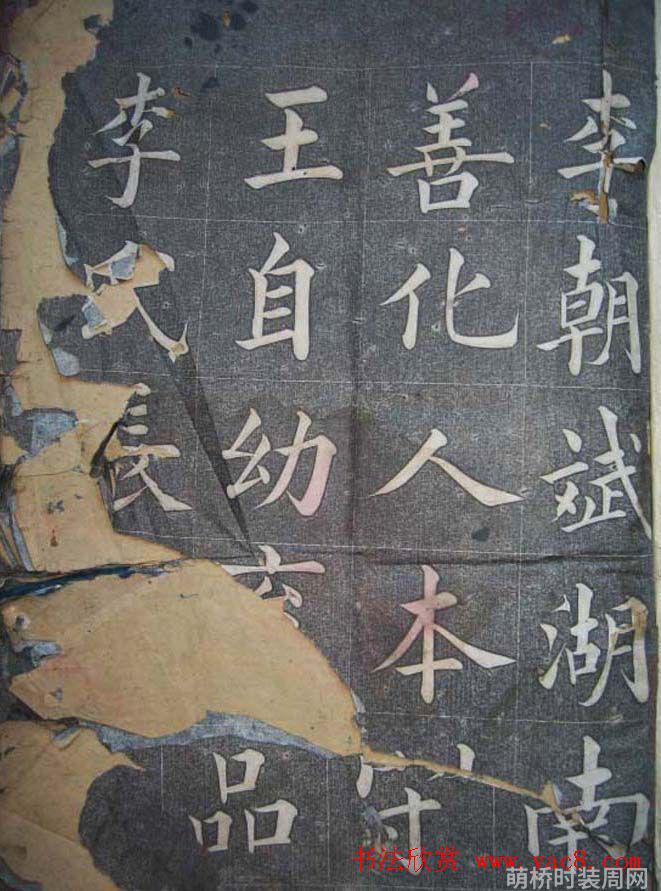 李朝斌湖南
善化人本
王自幼品
李氏長
书法欣赏 www.yac8.com
萌桥时装周网